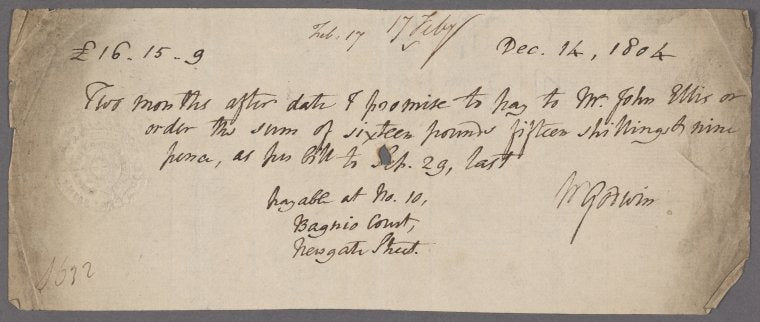 Feb. 17 17 Feby
£16-15-9 Dec. 14, 1804
Two months after date I promise to pay to Mr John Ellis or
order the sum of sixteen pounds fifteen shillings & nine
pence, as per Bill to Sep. 29, last
payable at No. 10,
Bagnio Court,
Newgate Street.
W Godwin